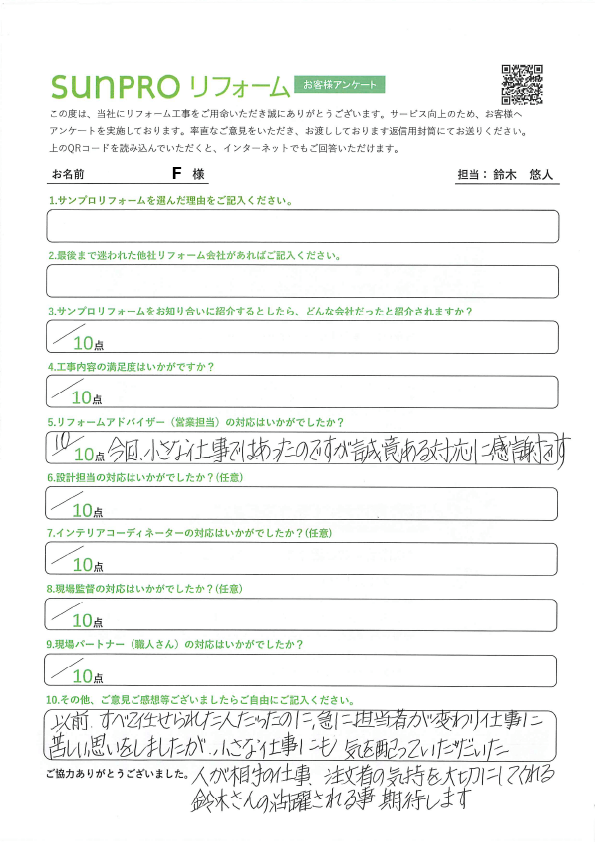 sunPRO リフォーム お客様アンケート
この度は、当社にリフォーム工事をご用命いただき誠にありがとうございます。サービス向上のため、お客様へ
アンケートを実施しております。率直なご意見をいただき、お渡ししております返信用封筒にてお送りください。
上のQRコードを読み込んでいただくと、インターネットでもご回答いただけます。
お名前 F 様 担当： 鈴木 悠人
1.サンプロリフォームを選んだ理由をご記入ください。
2.最後まで迷われた他社リフォーム会社があればご記入ください。
3.サンプロリフォームをお知り合いに紹介するとしたら、どんな会社だったと紹介されますか？
／10点
4.工事内容の満足度はいかがですか？
／10点
5.リフォームアドバイザー（営業担当）の対応はいかがでしたか？
10／10点 今回、小さな仕事ではあったのですが誠意ある対応に感謝です
6.設計担当の対応はいかがでしたか？(任意)
／10点
7.インテリアコーディネーターの対応はいかがでしたか？(任意)
／10点
8.現場監督の対応はいかがでしたか？(任意)
／10点
9.現場パートナー（職人さん）の対応はいかがでしたか？
／10点
10.その他、ご意見ご感想等ございましたらご自由にご記入ください。
以前、すべて任せられた人だったのに、急に担当者が変わり仕事に
苦しい思いをしましたが、小さな仕事にも気を配っていただいた
ご協力ありがとうございました。 人が相手の仕事、注文者の気持を大切にしてくれる
鈴木さんの活躍される事 期待します